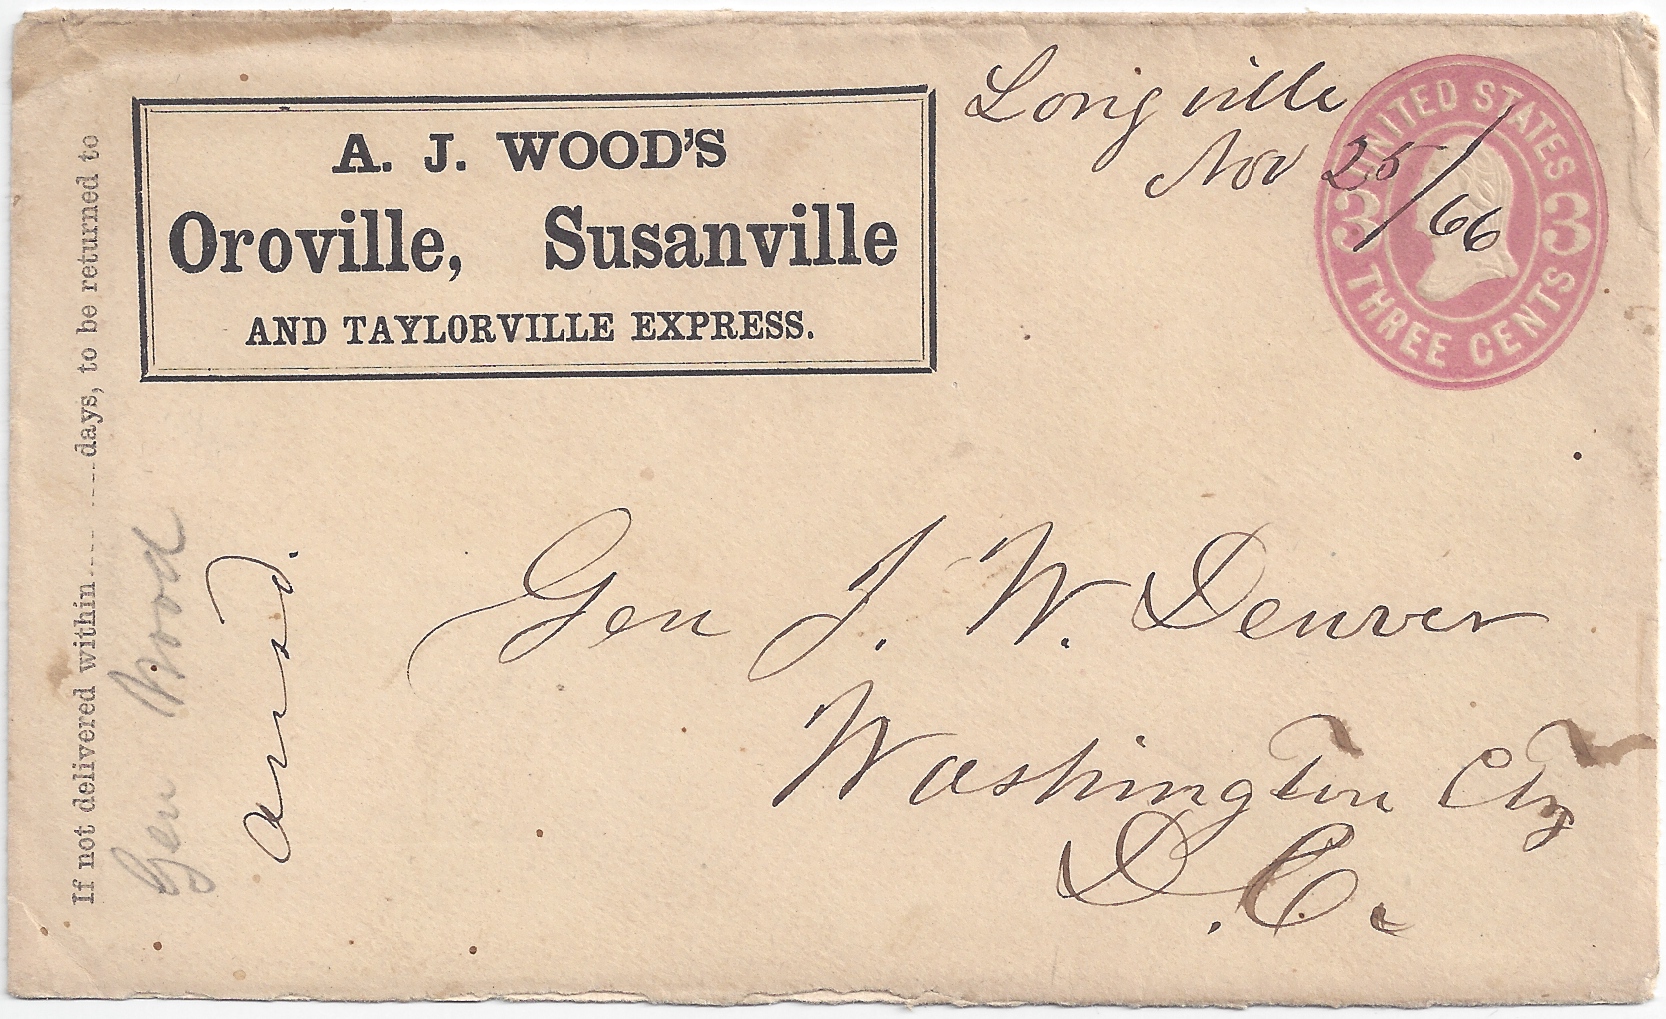 A. J. WOOD'S
Oroville, Susanville
AND TAYLORVILLE EXPRESS.
Longville
Nov 25/66
UNITED STATES
3 3
THREE CENTS
If not delivered within ........ days, to be returned to
Gen Wood
ansd.
Gen J. W. Denver
Washington City
D. C.